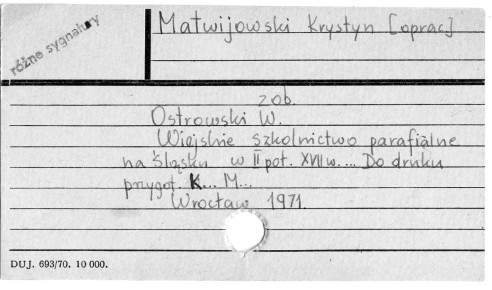 różne sygnatury
Matwijowski Krystyn [oprac]
zob.
Ostrowski W.
Wiejskie szkolnictwo parafialne
na Śląsku w II poł. XVII w. ... Do druku
przygot. K... M...
Wrocław 1971.
DUJ. 693/70. 10 000.